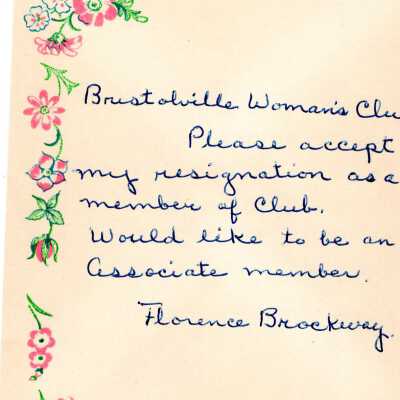 Brustolville Woman's Clu
Please accept
my resignation as a
member of Club.
Would like to be an
Associate member.
Florence Brockway.